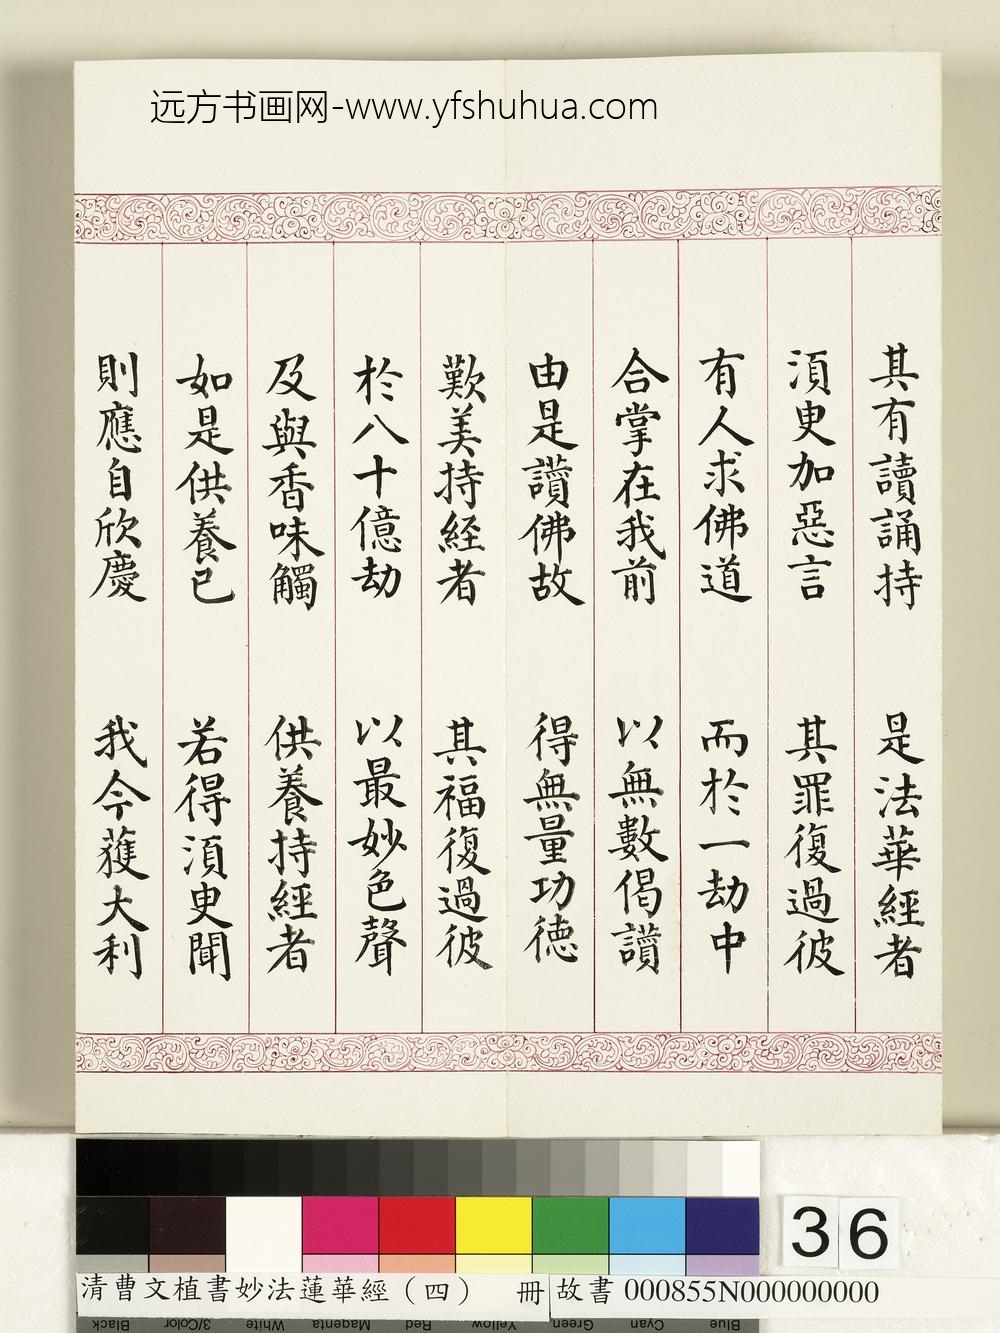 远方书画网-www.yfshuhua.com
其有讀誦持 是法華經者
須臾加惡言 其罪復過彼
有人求佛道 而於一劫中
合掌在我前 以無數偈讚
由是讚佛故 得無量功德
歎美持經者 其福復過彼
於八十億劫 以最妙色聲
及與香味觸 供養持經者
如是供養已 若得須臾聞
則應自欣慶 我今獲大利
36
清曹文植書妙法蓮華經（四） 冊
故書 000855N000000000
Black
3/Color
White
Magenta
Red
Yellow
Green
Cyan
Blue